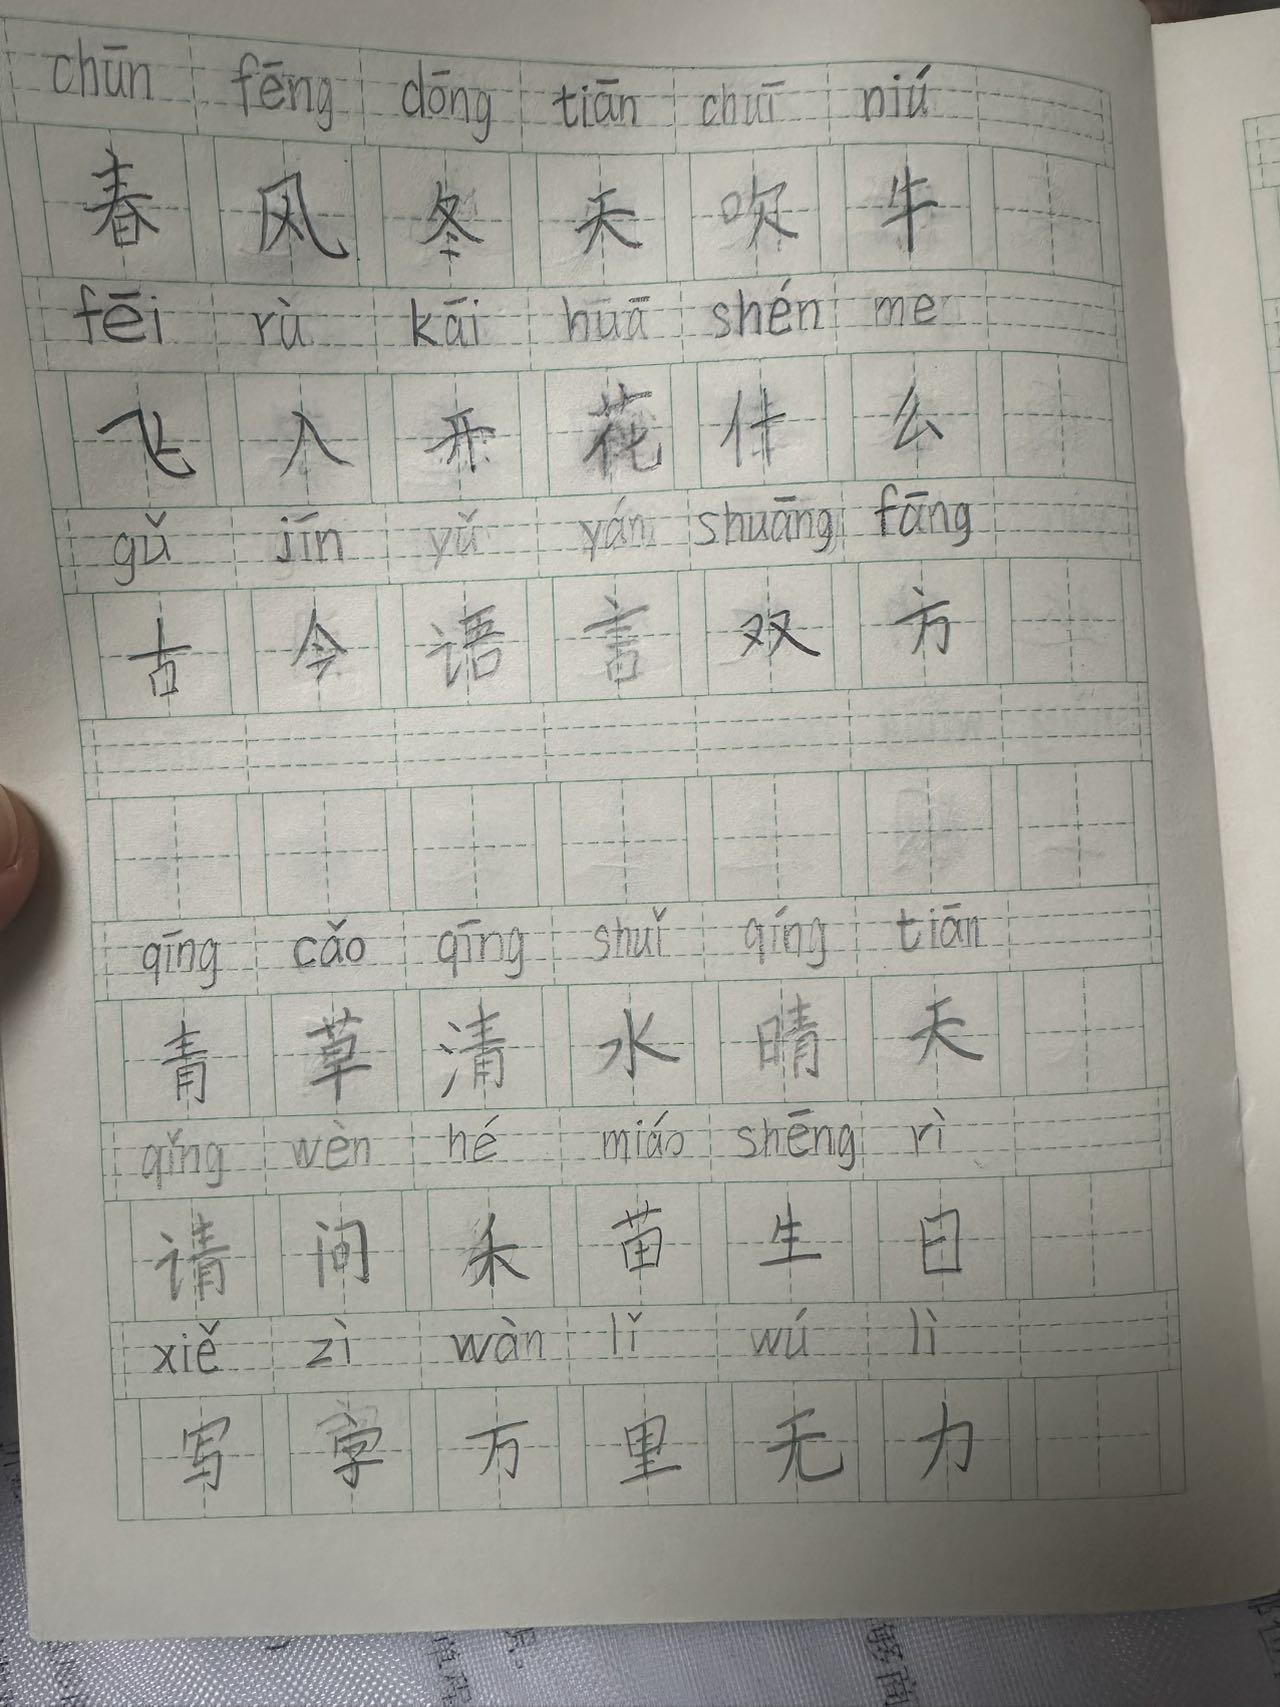 chūn fēng dōng tiān chuī niú
春 风 冬 天 吹 牛
fēi rù kāi huā shén me
飞 入 开 花 什 么
gǔ jīn yǔ yán shuāng fāng
古 今 语 言 双 方
qīng cǎo qīng shuǐ qíng tiān
青 草 清 水 晴 天
qǐng wèn hé miáo shēng rì
请 问 禾 苗 生 日
xiě zì wàn lǐ wú lì
写 字 万 里 无 力